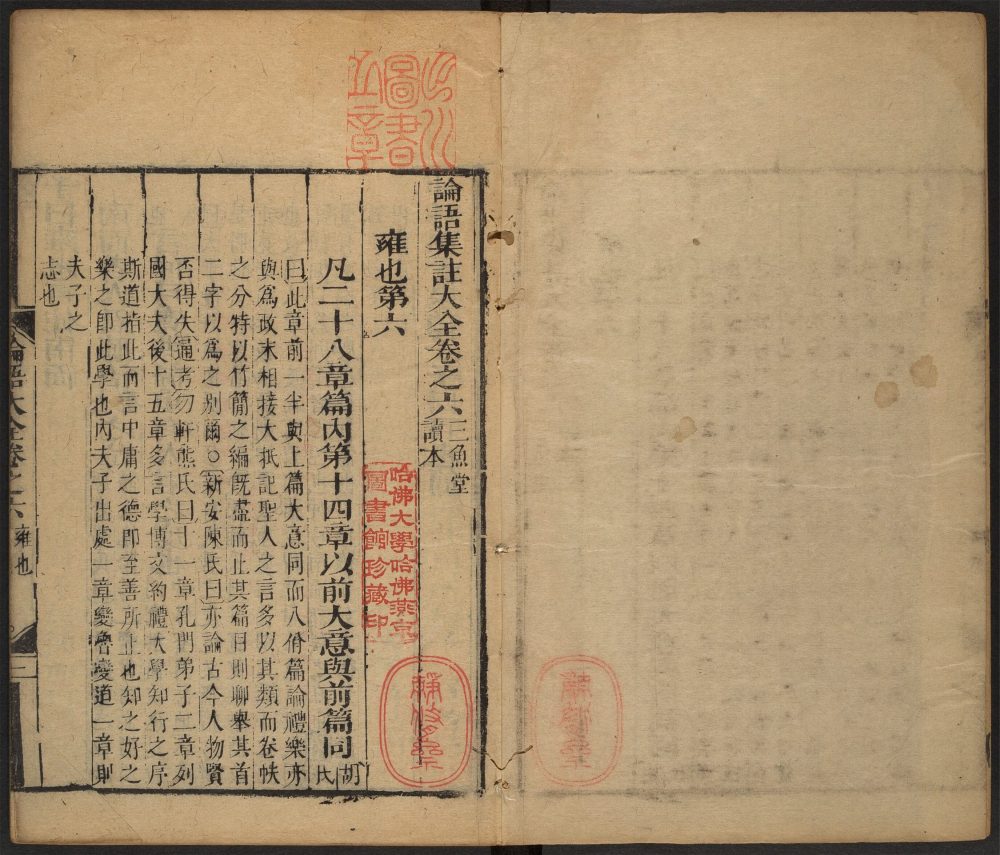 論語集註大全卷之六 三魚堂讀本
雍也第六
凡二十八章篇內第十四章以前大意與前篇同 胡氏
曰此章前一半與上篇大意同而八佾篇論禮樂亦
與爲政末相接大抵記聖人之言多以其類而卷帙
之分特以竹簡之編旣盡而止其篇目則聊舉其首
二字以爲之別爾○新安陳氏曰亦論古今人物賢
否得失遍考勿軒熊氏曰十一章孔門弟子二章列
國大夫後十五章多言學博文約禮大學知行之序
斯道指此而言中庸之德卽至善所止也知之好之
樂之卽此學也內夫子出處一章變魯變道一章則
夫子之
志也
論語大全卷之六 雍也
圖書
章
哈佛大學哈佛燕京
圖書館珍藏印